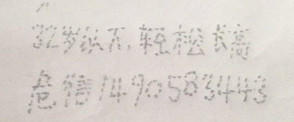 32岁以下,轻松长高
危信1490583443